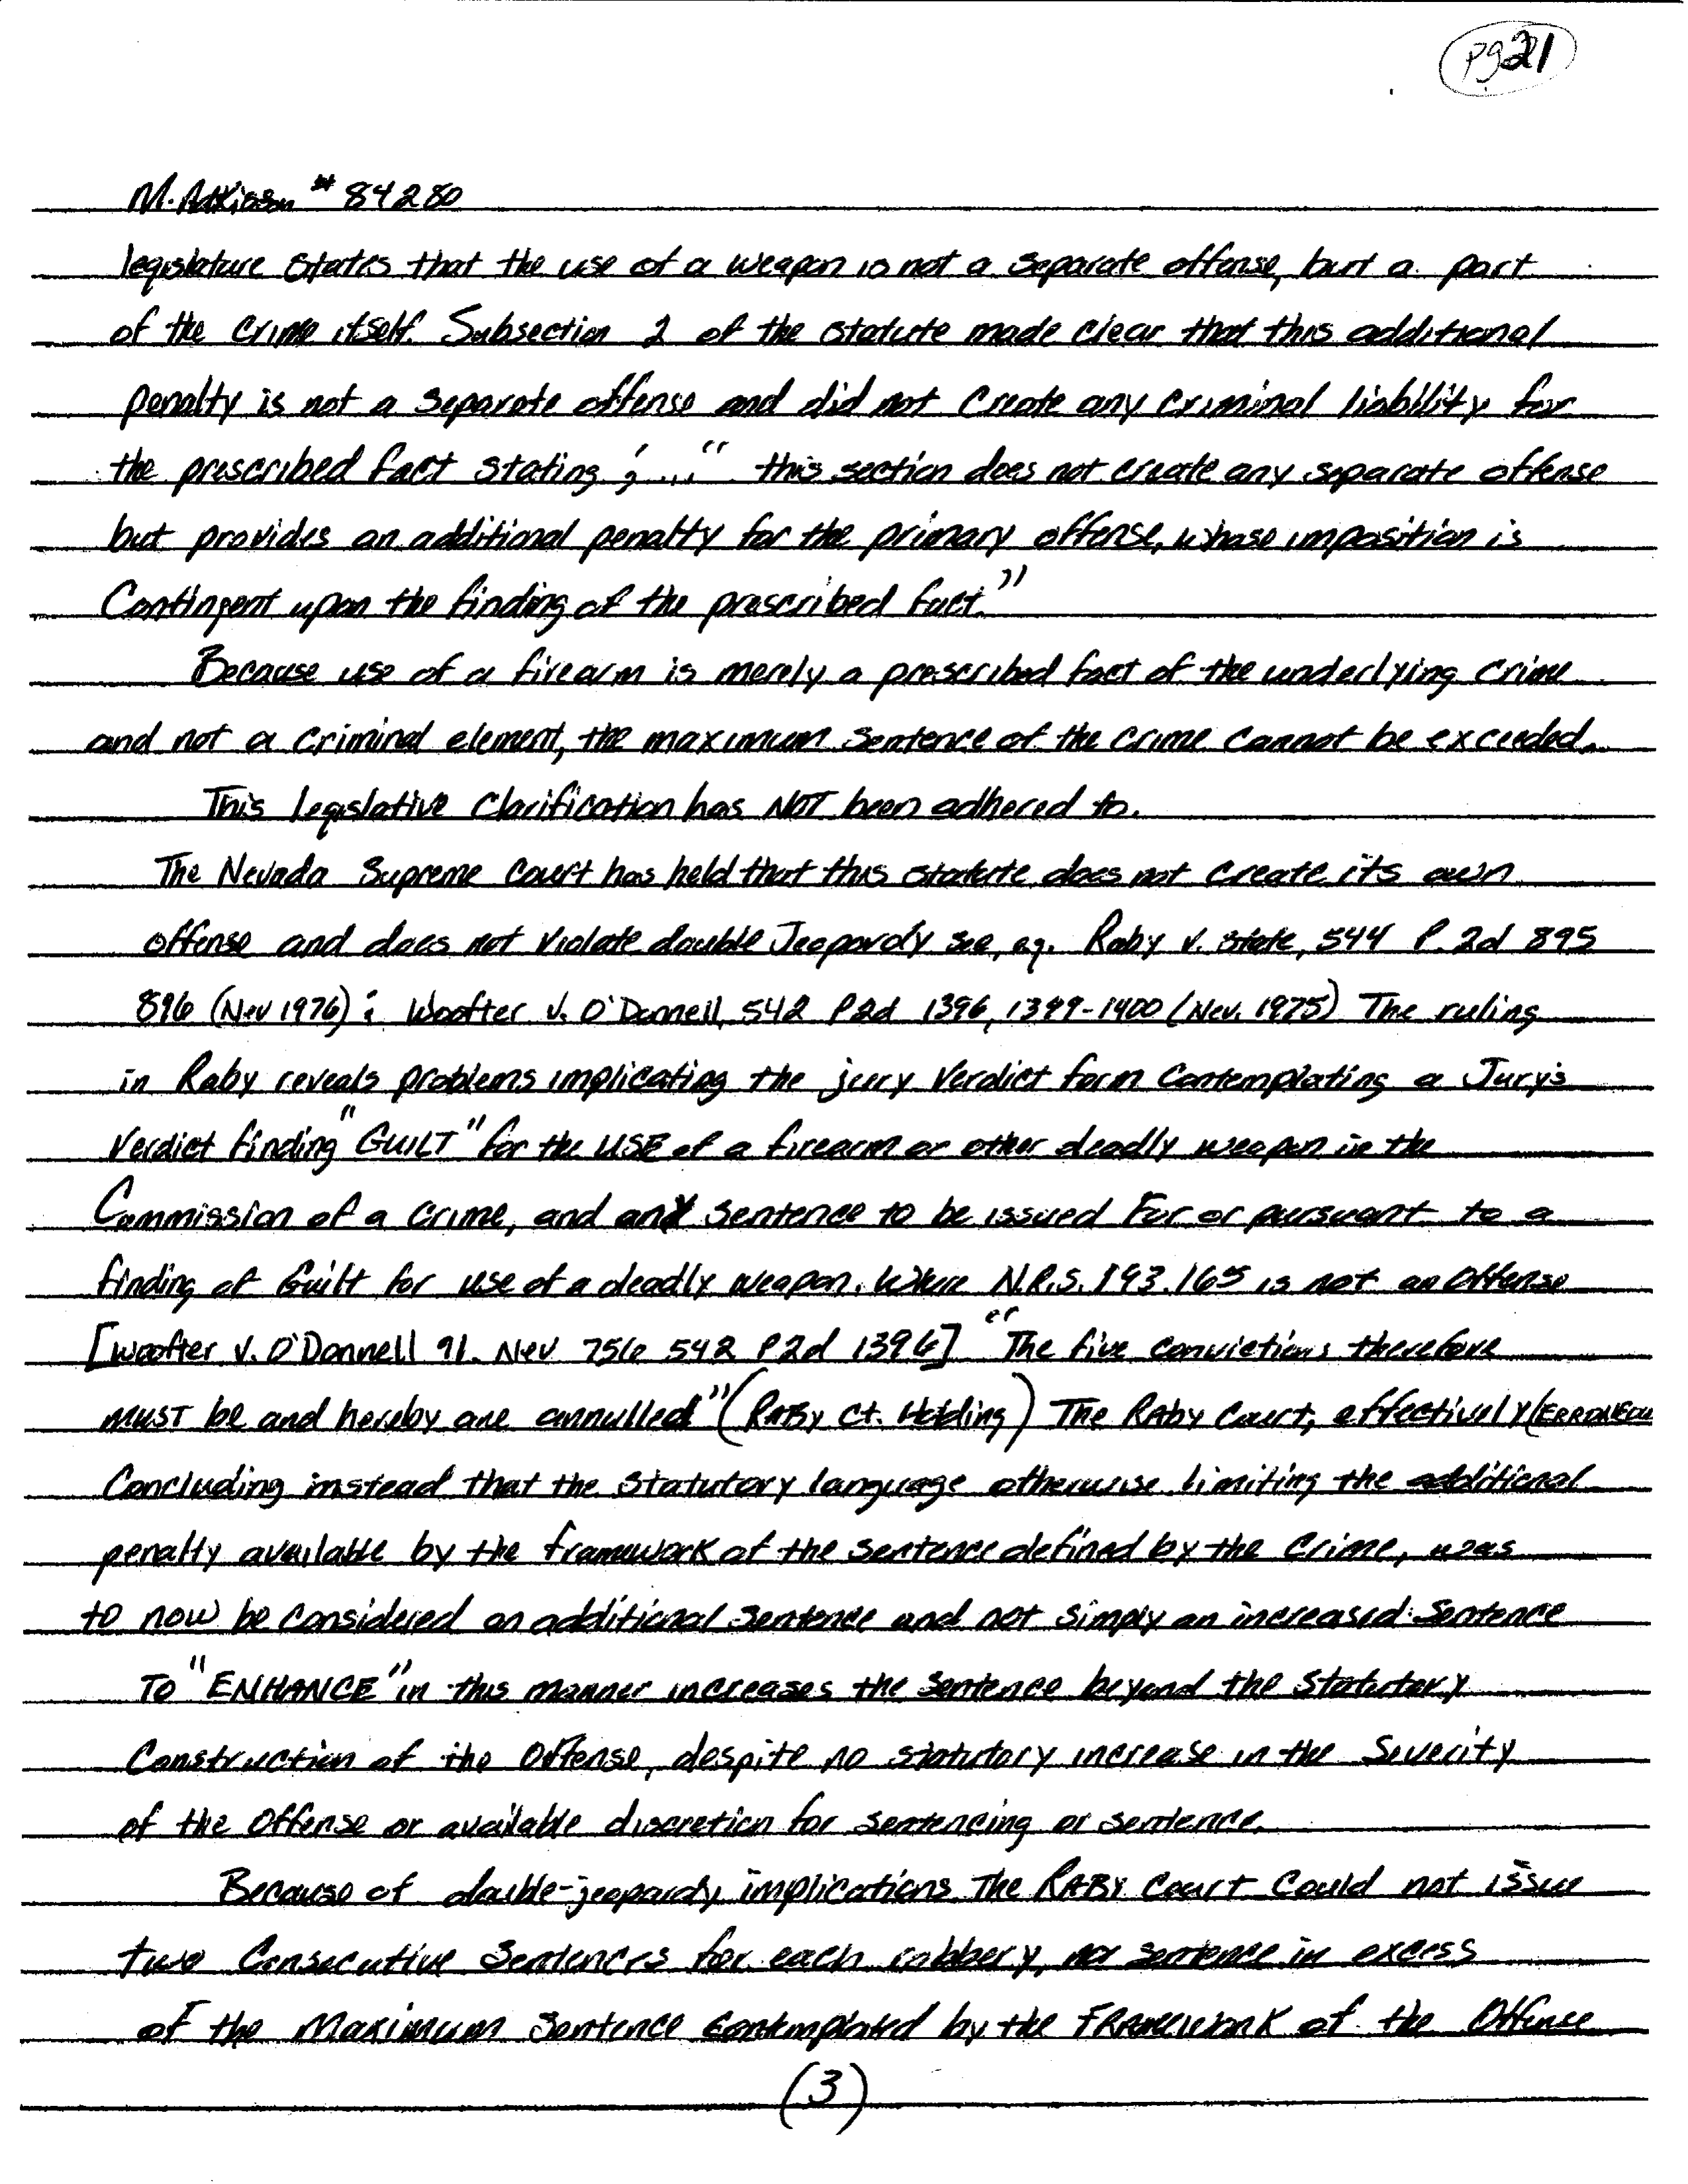 Pg21
M. Atkinson # 84280
legislature states that the use of a weapon is not a separate offense, but a part
of the Crime itself. Subsection 2 of the statute made clear that this additional
penalty is not a separate offense and did not create any criminal liability for
the prescribed fact stating; ..." this section does not create any separate offense
but provides an additional penalty for the primary offense, whose imposition is
Contingent upon the finding of the prescribed fact."
Because use of a firearm is merely a prescribed fact of the underlying crime
and not a criminal element, the maximum sentence of the crime cannot be exceeded.
This legislative Clarification has NOT been adhered to.
The Nevada Supreme Court has held that this statute does not create its own
offense and does not violate double Jeopardy see, eg. Raby v. State, 544 P. 2d 895
896 (Nev 1976); Woofter v. O'Donnell, 542 P2d 1396, 1399-1400 (Nev. 1975) The ruling
in Raby reveals problems implicating the jury Verdict form Contemplating a Jury's
Verdict finding "GUILT" for the USE of a firearm or other deadly weapon in the
Commission of a Crime, and any sentence to be issued For or pursuant to a
finding of Guilt for use of a deadly weapon. Where N.R.S. 193.165 is not an Offense
[Woofter v. O'Donnell 91. Nev 756 542 P2d 1396] "The five convictions therefore
MUST be and hereby are annulled" (RABy Ct. Holding) The RAby Court, effectively/ERRONEOU
Concluding instead that the statutory language otherwise limiting the additional
penalty available by the framework of the sentence defined by the Crime, was
to now be considered an additional sentence and not simply an increased sentence
To "ENHANCE" in this manner increases the sentence beyond the statutory
Construction of the Offense, despite no statutory increase in the Severity
of the Offense or available discretion for sentencing or sentence.
Because of double-jeopardy implications The RABY Court Could not issue
two Consecutive Sentences for each robbery, nor sentence in excess
of the Maximum Sentence contemplated by the FRAMEWORK of the Offense
(3)